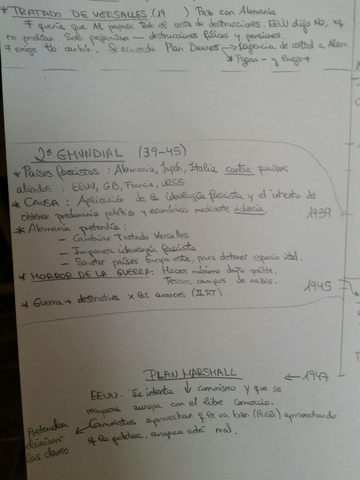 * TRATADO DE VERSALLES. (19 ) Paz con Alemania
quería que Al pagase todo el coste de destrucciones. EEUU dijo NO, xq
no podían. Solo pagarían — destrucciones físicas y pensiones.
exige tb cambio. Se acuerda Plan Dawes → agencia de control a Alem
→ Pagan - y luego +
2ª G MUNDIAL (39-45)
* Países fascistas : Alemania, Japón, Italia contra países
aliados : EEUU, GB, Francia, URSS
* CAUSA : Aplicación de la ideología fascista y el intento de
obtener predominio político y económico mediante violencia
1939
* Alemania pretendía :
— Cambiar Tratado Versalles
— Imponer ideología fascista
— Someter países europa este, para obtener espacio vital.
* HORROR DE LA GUERRA: Hacer máximo daño posible.
Terror, campos de nazis.
1945
* Guerra + destructiva x los avances (II RI)
PLAN MARSHALL ← 1947
EEUU. Se intenta ↓ comunismo y que se
europa con el libre comercio.
Comunistas aprovechan q le va bien (Rusia) aprovechando
q la europa está mal.
Pretenden
eliminar
las clases